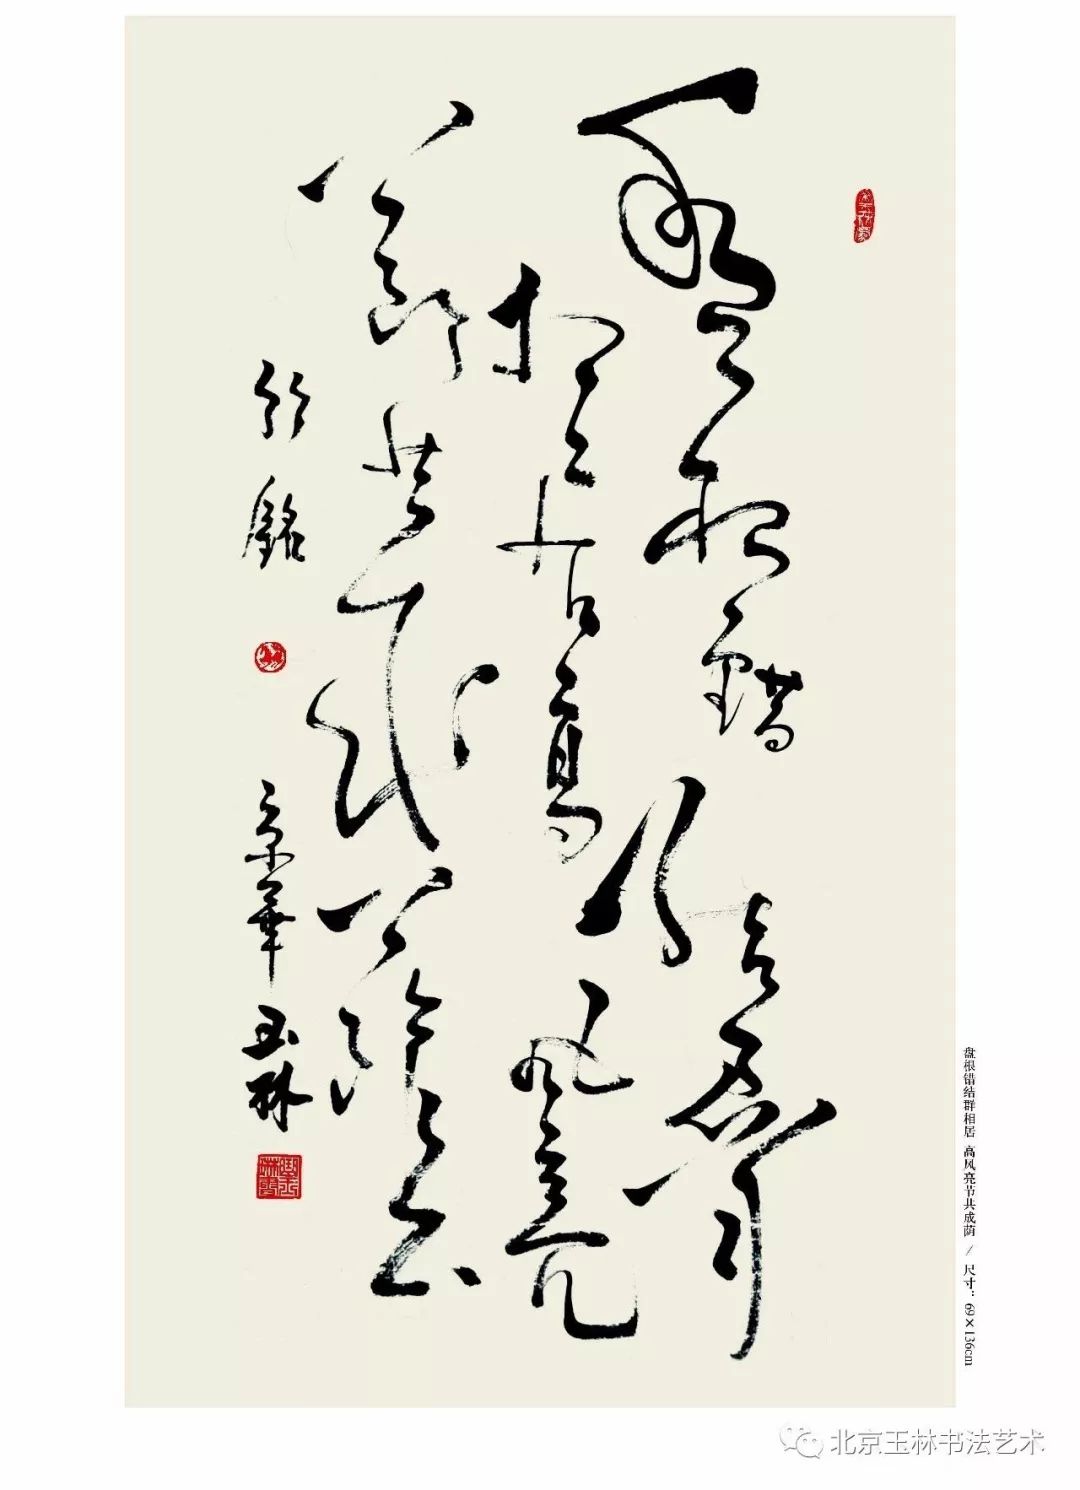 盤根錯結群
相居高風亮
節共成蔭
竹銘 京華玉林
盘根错结群相居 高风亮节共成荫 / 尺寸：69×136cm
北京玉林书法艺术